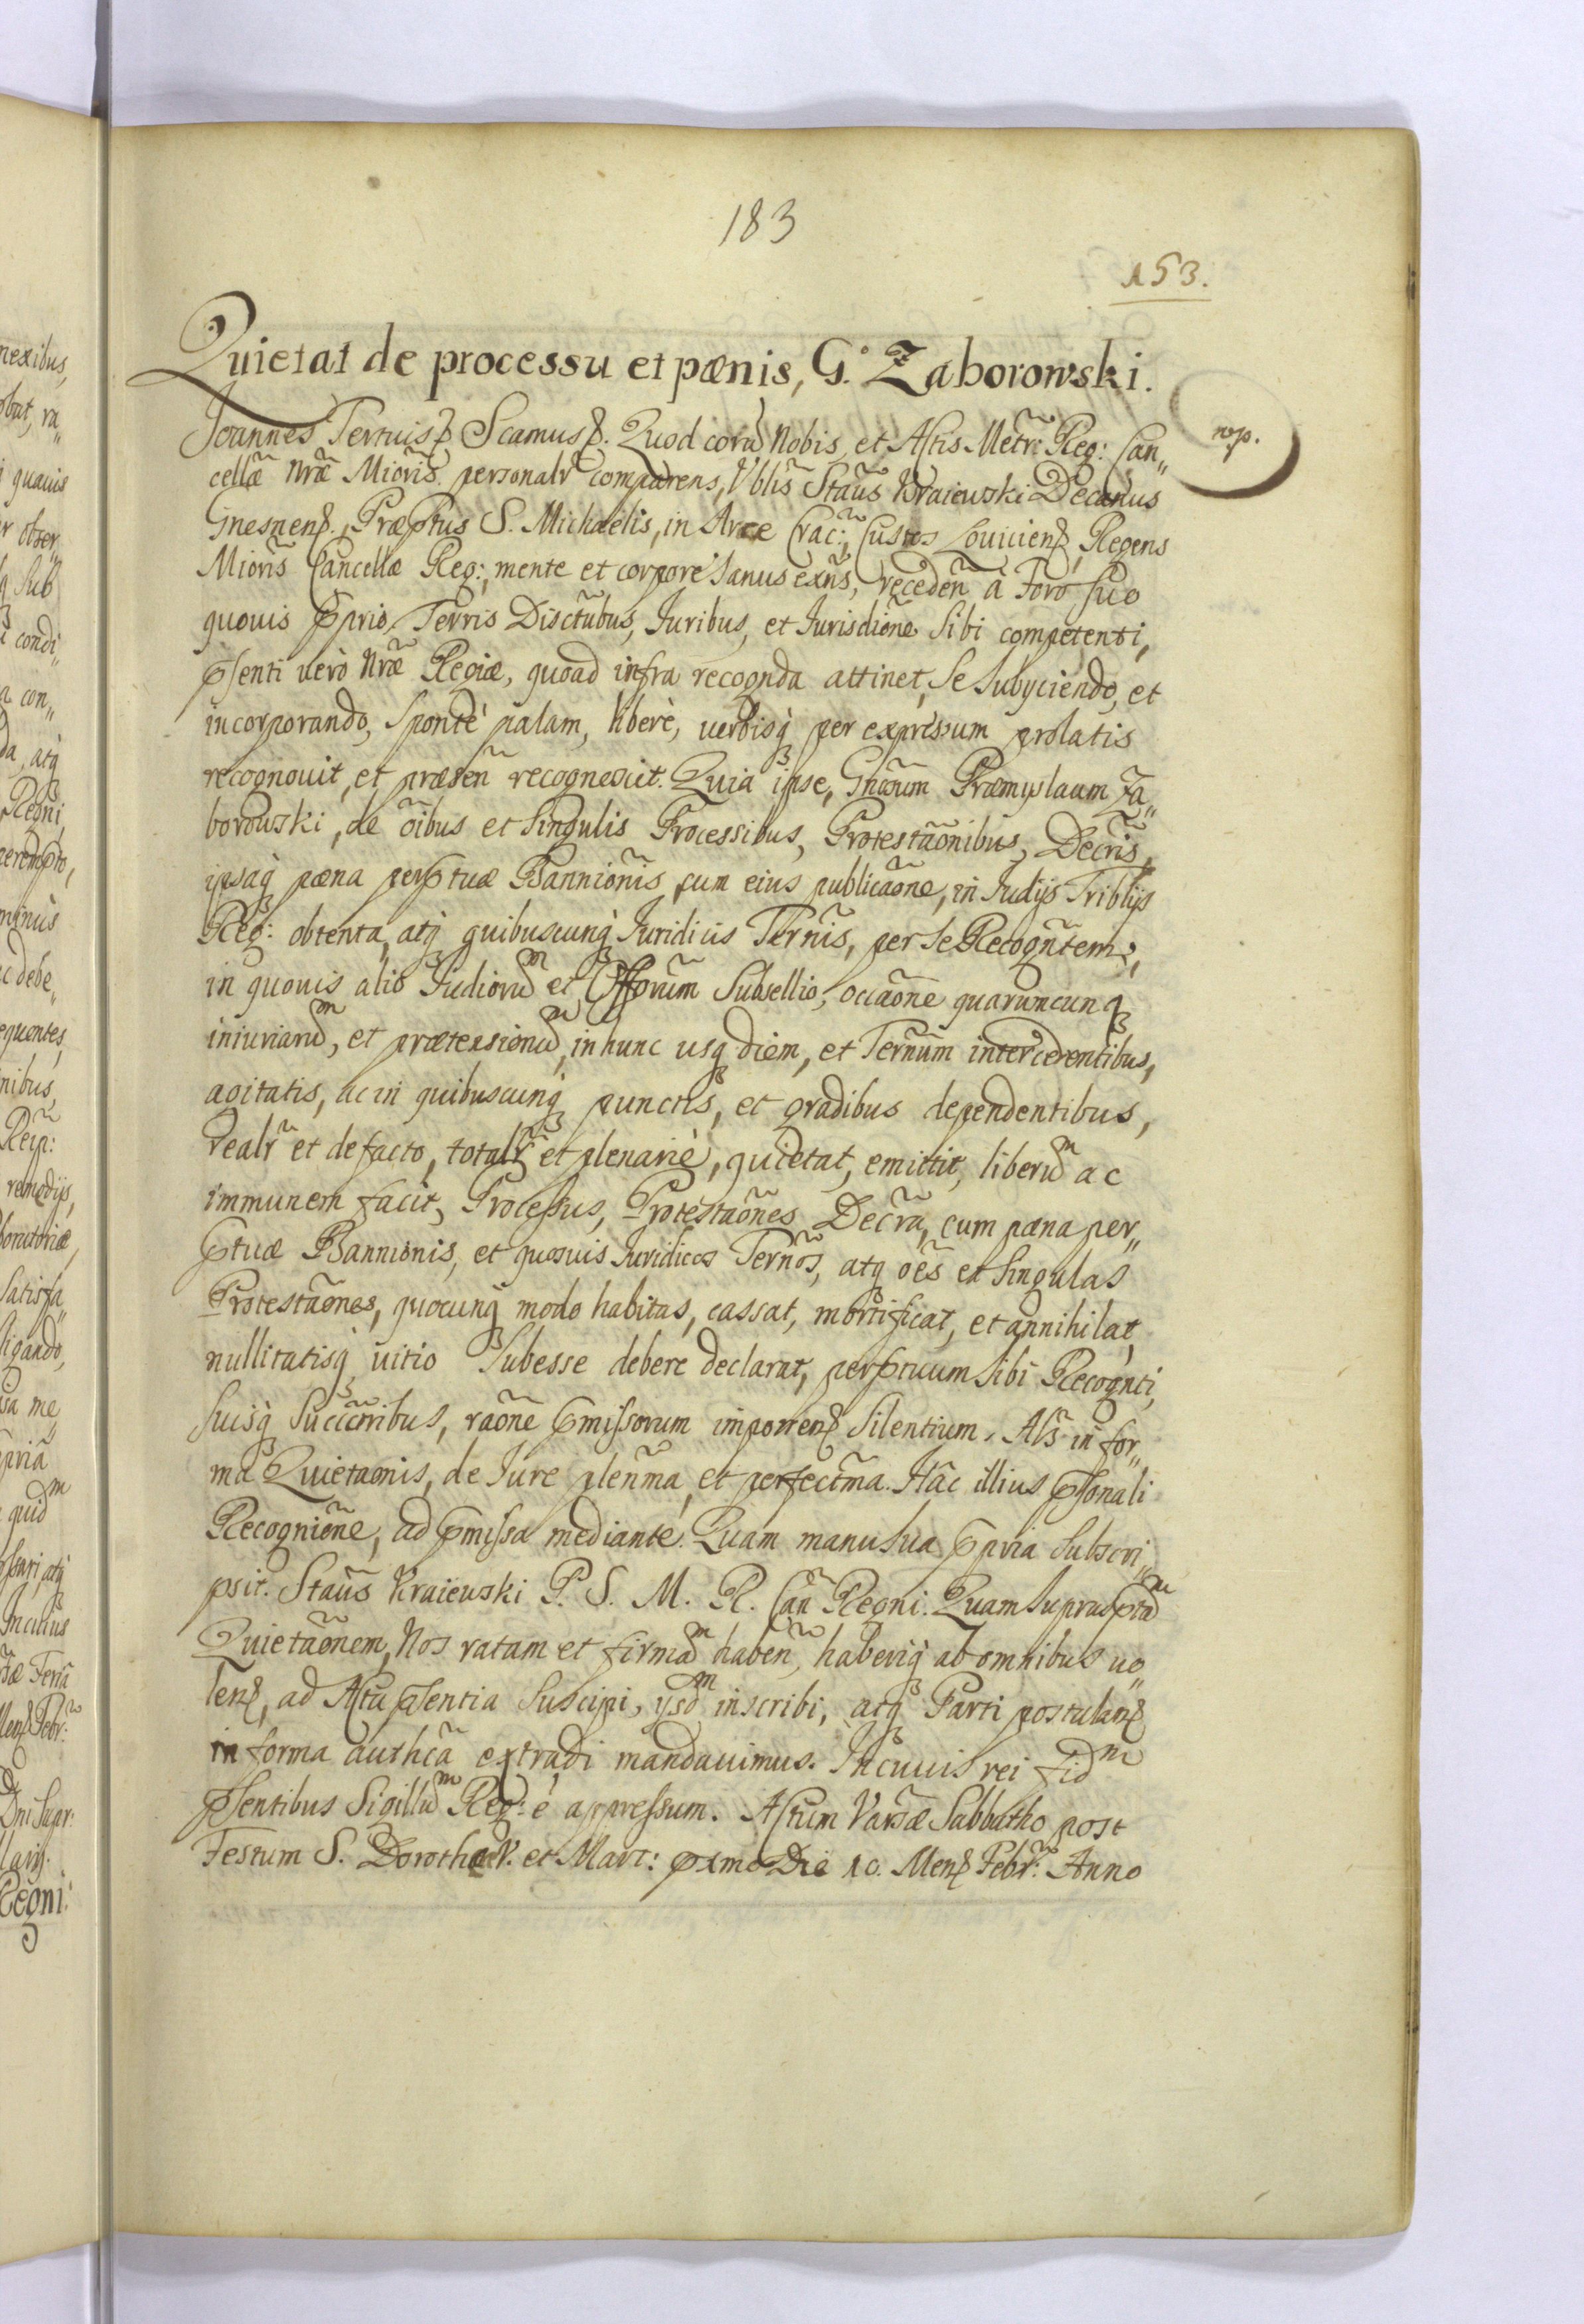 183
153.
Quietat de processu et pænis, G.° Zaborowski.
np.
Joannes Tertuisꝑ Scamusꝑ. Quod corũ Nobis, et Actis Metr̃: Reg: Can„
cellæ̃ Nræ̃ Mioris̃ personalr̃ comparens, Vblis̃ Staũs Kraiewski Decanus
Gnesnenꝭ, Præptus S. Michaelis, in Arce Crac:̃, Custos Louicienꝭ, Regens
Mioris̃ Cancellæ Reg:, mente et corpore sanus exñs, recedeñ à Foro suo
quouis ꝓprio, Terris Disctũbus, Iuribus, et Iurisdiõne sibi competenti,
ꝑsenti verò Nræ̃ Regiæ, quoad infra recognda attinet, se subyciendo, et
incorporando, sponte palam, liberè, verbisq́ꝫ per expressum prolatis
recognouit, et præseñ recognescit. Quia ipse, Gnõrum Præmyslaum Za„
borowski, de õibus et singulis Processibus, Protestaõnibus, Decris̃,
ipsaqꝫ pæna perꝑtuæ Bannionis̃, cum eius publicaõne, in Iudijs Triblijs
Reg: obtenta, atqꝫ quibuscunqꝫ Iuridicis Terñis, per se Recogñtem,
in quouis alio Iudiorũᵐ et Offorũm Subsellio, occaõne quaruncunqꝫ
iniuriarũᵐ, et prætensionũᵐ, in hunc usqꝫ diem, et Terñum intercedentibus,
agitatis, ac in quibuscunqꝫ punctis, et gradibus dependentibus,
realr̃ et de facto, totalr̃ et plenariè, quietat, emittit, liberũᵐ ac
immunem facit, Processus, Protestaõnes Decr̃a, cum pæna per„
ꝑtuæ Bannionis, et quosuis Iuridicos Terños, atqꝫ oẽs et singulas
Protestaõnes, quocunqꝫ modo habitas, cassat, mortificat, et annihilat,
nullitatisqꝫ uitio subesse debere declarat, perꝑtuum sibi Recognti,
suisqꝫ Succc̃oribus, raõne ꝑmissorum imponenꝭ silentium. Als̃ in for„
ma Quietaonis, de Iure pleñma, et perfectm̃a. Hâc illius ꝑsonali
Recogniõne, ad ꝑmissa mediante. Quam manu sua ꝓpria subscri„
psit. Staũs Kraiewski P. S. M. R. Cañ Regni. Quam supraspᵗãᵐ
Quietaõnem, Nos ratam et firmãᵐ habeñ, haberiqꝫ ab omnibus uo„
lenꝭ, ad Acta ꝑsentia suscipi, ysdᵐ inscribi, atqꝫ Parti postulanꝭ
in forma authc̃a extradi mandauimus. In cuius rei fidᵐ
ꝑsentibus Sigillũᵐ Reg: é appressum. Actum Varsæ Sabbatho post
Festum S. Dorotheæ V. et Mart: pxmo Die 10. Menꝭ Febr̃: Anno